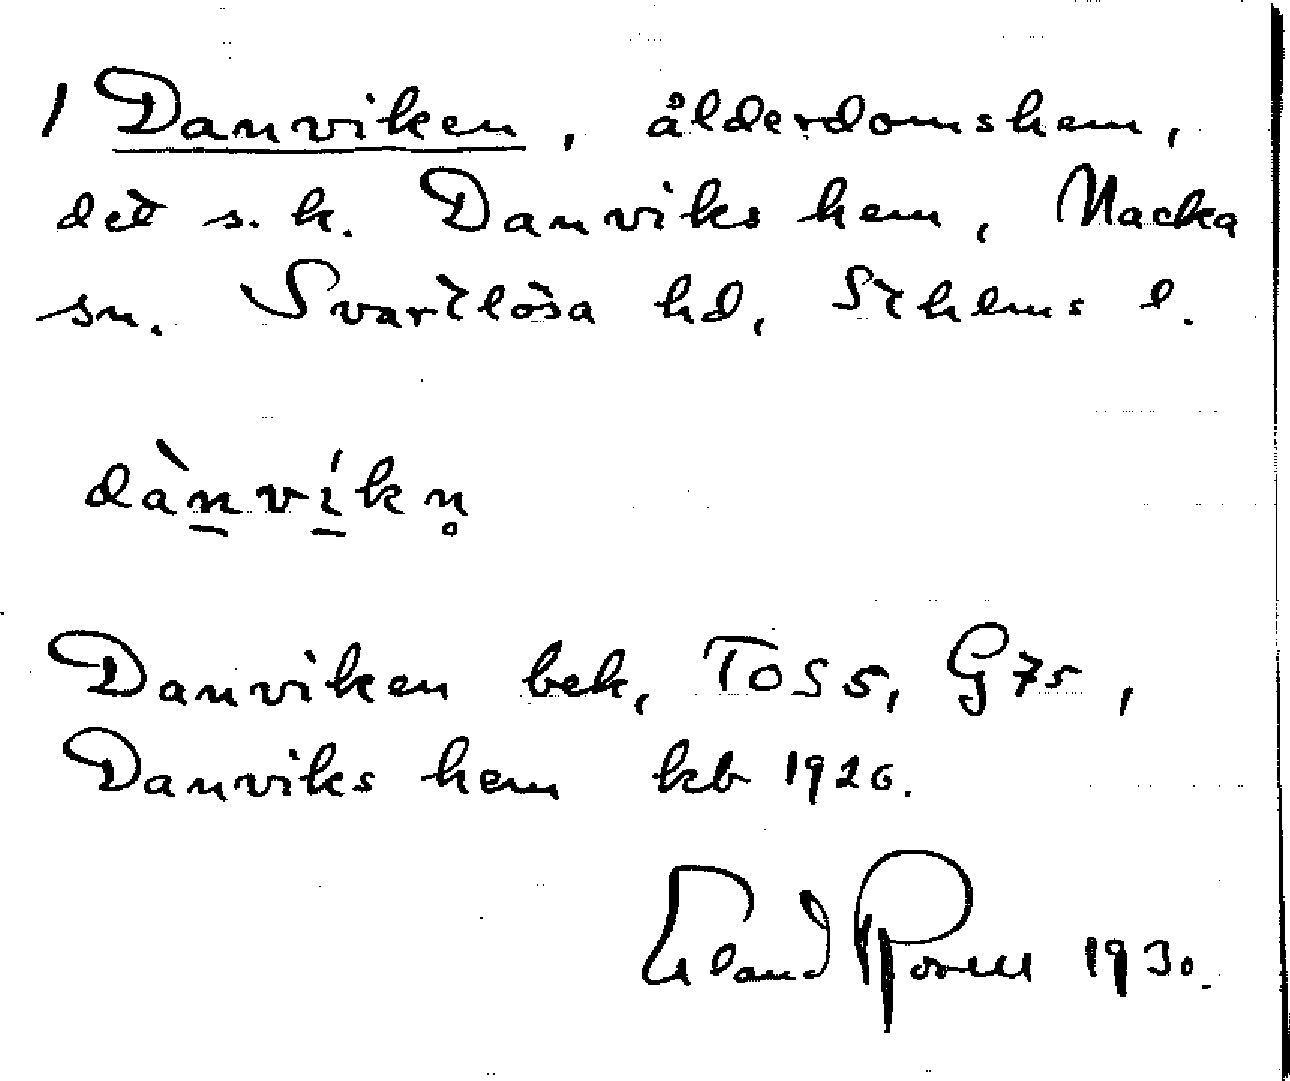 1 Danviken, ålderdomshem,
det s.k. Danviks hem, Nacka
sn. Svartlösa hd, Sthlms l.
dàn̠ví̠kn̥
Danviken bek, TOS 5, G 75,
Danviks hem kb 1926.
Erland Rosell 1930.